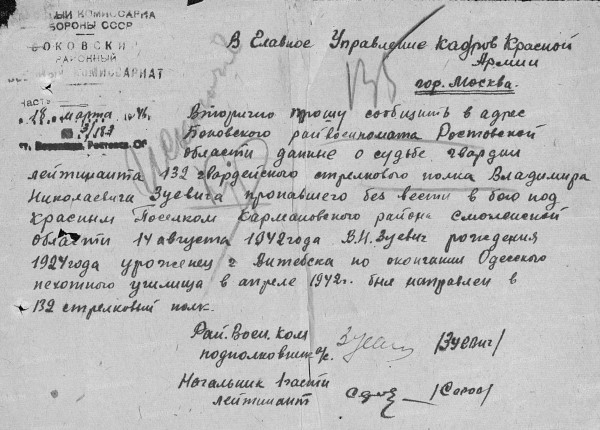 НЫЙ КОМИССАРИА
БОРОНЫ СССР
БОКОВСКИ
РАЙОННЫЙ
КОМИССАРИАТ
Часть
"28" марта 194
3/183
В Главное Управление кадров Красной
Армии
гор. Москва.
Вторично прошу сообщить в адрес
Боковского райвоенкомата Ростовской
области данные о судьбе гвардии
лейтинанта 132 гвардейского стрелкового полка Владимира
Николаевича Зуевича пропавшего без вести в бою под
Красным Поселком Кармановского района Смоленской
области 14 августа 1942 года В.Н. Зуевич рождения
1924 года урожениц г Витебска по окончании Одесского
пехотного училища в апреле 1942 г. был направлен в
132 стрелковый полк.
Рай. Воен. Ком
подполковник а/с. /Зуевич/
Начальник 1 части
лейтинант